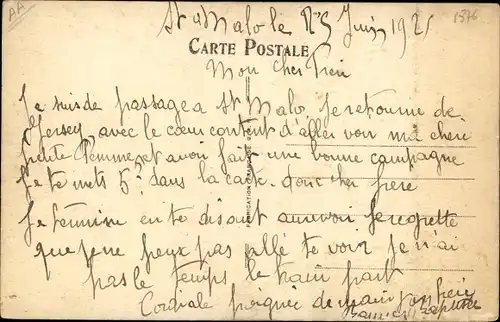 AA
1376
St Malo le 25 Juin 1921
CARTE POSTALE
Mon cher Frere
Je suis de passage a St Malo Je retourne de
Jersey, avec le cœur content d'aller voir ma chere
petite Femme, et avoir fait une bonne campagne
Je te mets 5 dans la carte donc cher frere
Je termine en te disant aurevoir Je regrette
que je ne peux pas allé te voir Je n'ai
pas le temps le train part
Cordiale poignee de main ton frere
FABRICATION FRANÇAISE